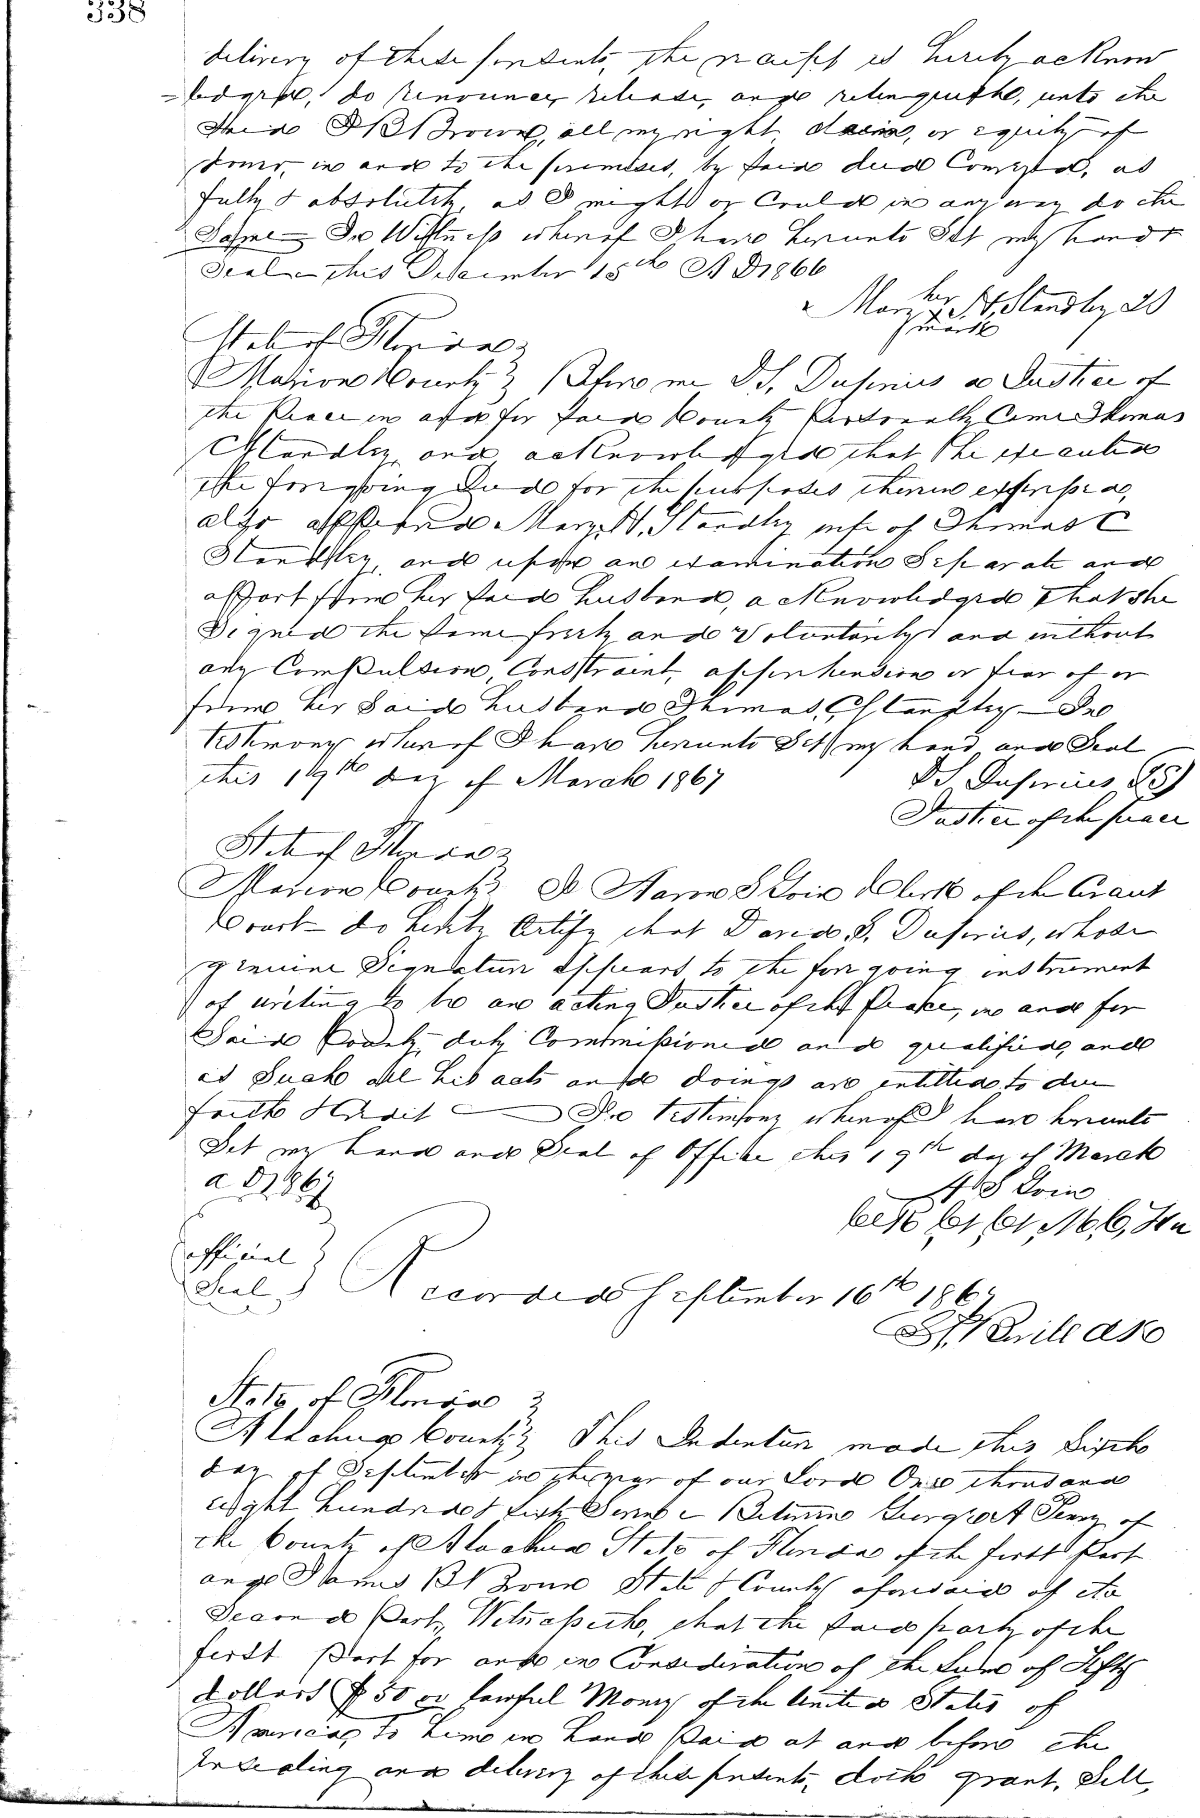 338
delivery of these presents, the receipt is hereby acknow
=ledged, do renounce, release, and relinquish, unto the
Said J B Brown, all my right, claim, or equity of
dower, in and to the premises, by said deed Conveyed, as
fully & absolutely, as I might or Could in any way do the
Same — In Witness whereof I have hereunto Set my hand &
Seal — this December 15th A D 1866
her
Mary H, Standley
mark
State of Florida
Marion County Before me D S, Duprius a Justice of
the Peace in and for said County Personally Came Thomas
C Standley, and acknowledged that he executed
the foregoing Deed for the purposes therein expressed,
also appeared Mary, H, Standley wife of Thomas C
Standley, and upon an examination Separate and
apart from her said husband, acknowledged that she
Signed the same freely and Voluntarily and without
any Compulsion, Constraint, apprehension or fear of or
from her Said husband Thomas, C Standley — In
testimony whereof I have hereunto Set my hand and Seal
this 19th day of March 1867 D S Duprius LS
Justice of the peace
State of Florida
Marion County I Aaron S Loin Clerk of the Circuit
Court — do hereby Certify that David, S. Duprius, whose
genuine Signature appears to the foregoing instrument
of writing to be an acting Justice of the Peace, in and for
Said County duly Commissioned and qualified, and
as Such all his acts and doings are entitled to due
faith & Credit — In testimony whereof I have hereunto
Set my hand and Seal of Office this 19th day of March
a D 1867
A S Loin
Clk Ct, Ct, M, C, Fla
official
Seal Recorded September 16th 1867
State of Florida
Alachua County This Indenture made this Sixth
day of September in the year of our Lord One thousand
eight hundred & sixty Seven — Between George A Perry of
the County of Alachua State of Florida of the first Part
and James B Brown State & County aforesaid of the
Second Part, Witnesseth, that the said party of the
first Part for and in Consideration of the Sum of Fifty
dollars $50 00 lawful Money of the United States of
America, to him in hand Paid at and before the
Ensealing and delivery of these presents, doth grant, Sell,